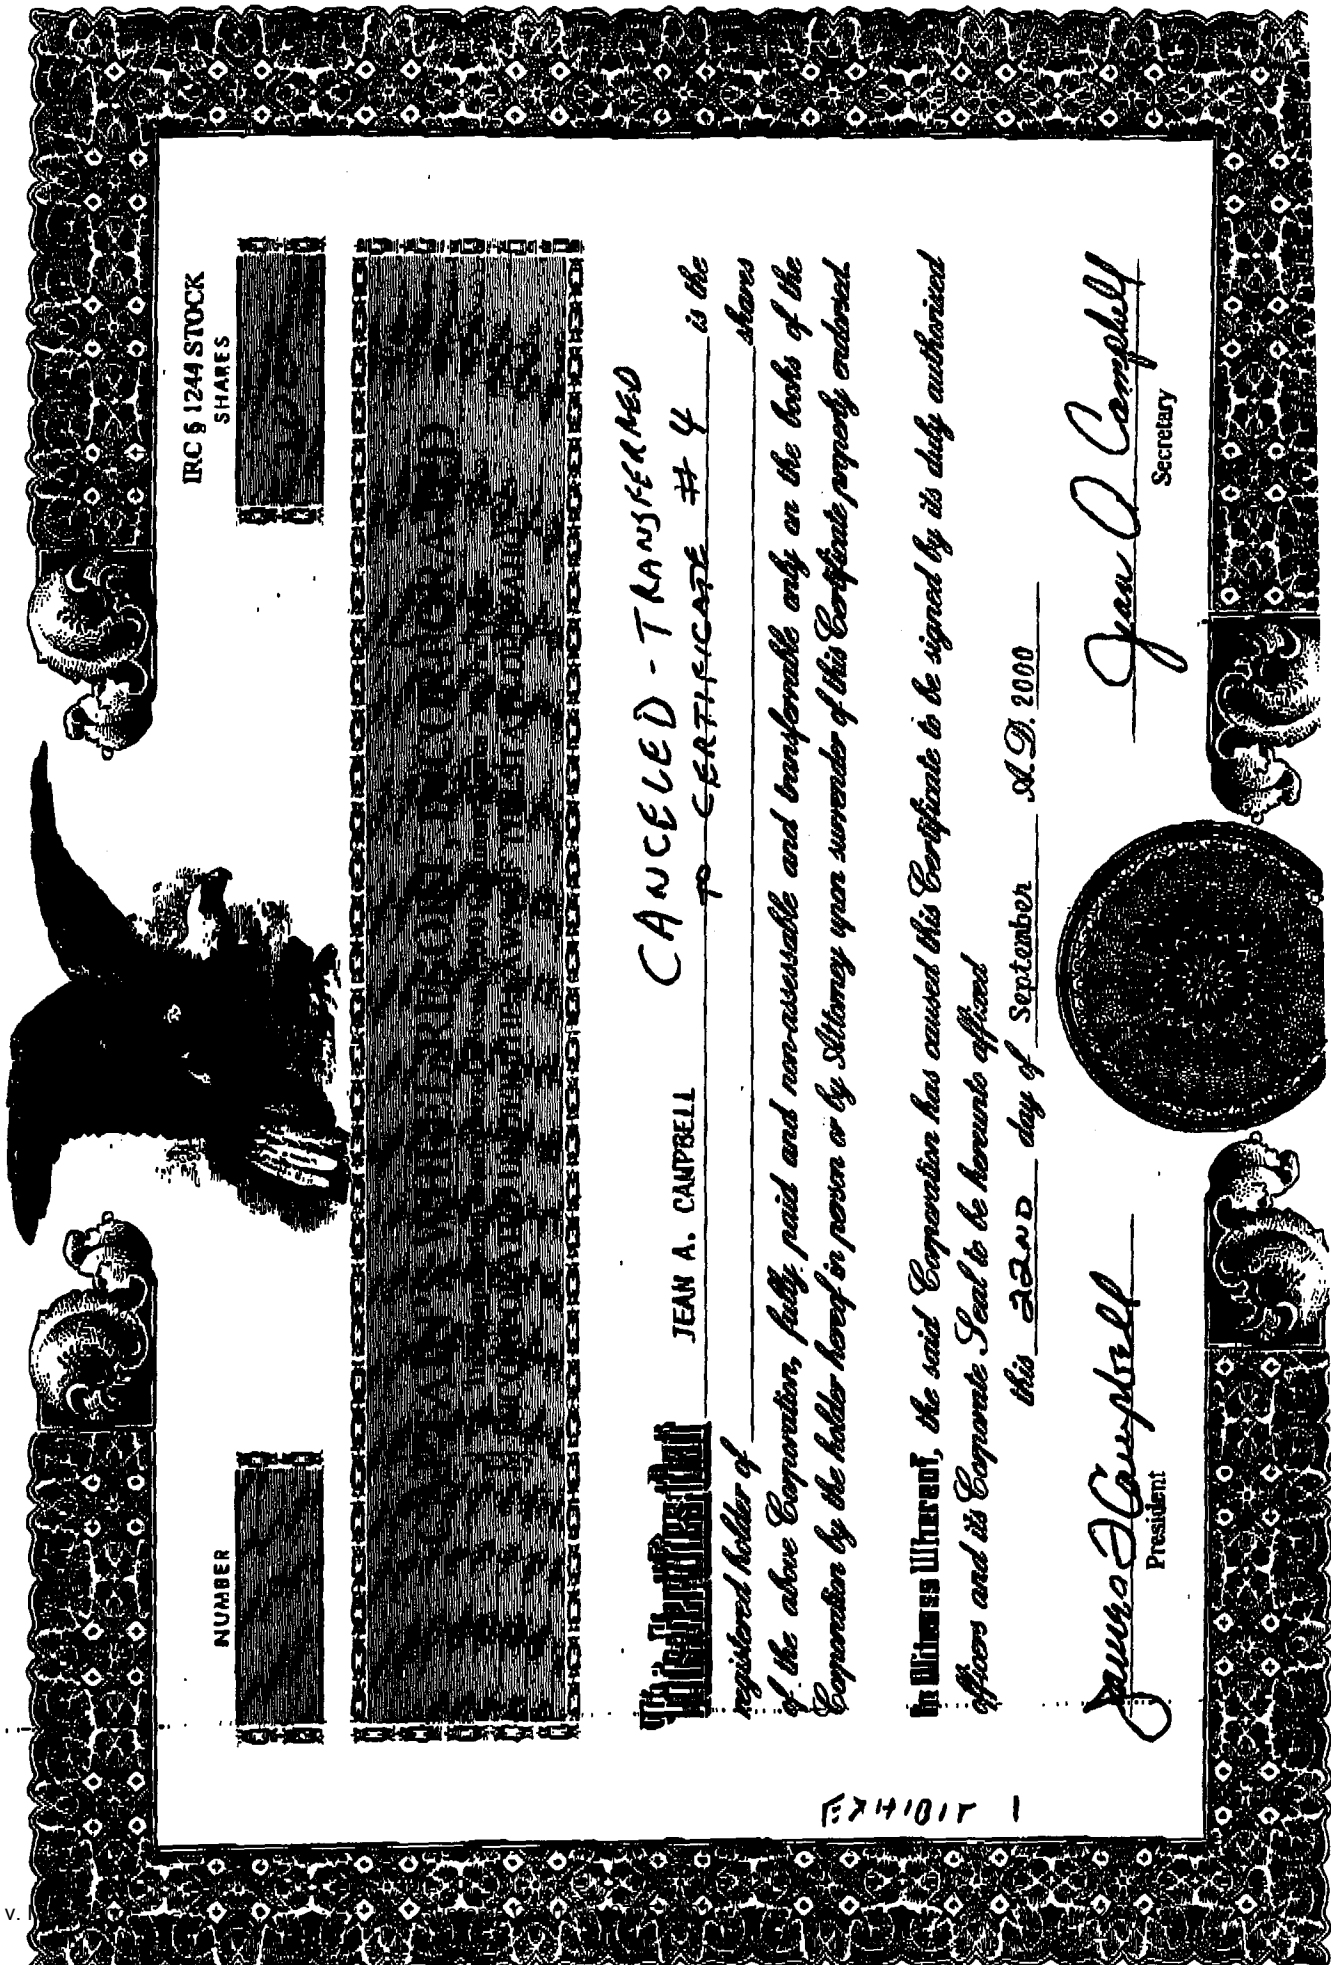 NUMBER
IRC § 1244 STOCK
SHARES
INCORPORATED
CANCELED - TRANSFERRED
This Certifies that JEAN A. CAMPBELL TO CERTIFICATE # 4 is the
registered holder of shares
of the above Corporation, fully paid and non-assessable and transferable only on the books of the
Corporation by the holder hereof in person or by Attorney upon surrender of this Certificate properly endorsed.
In Witness Whereof, the said Corporation has caused this Certificate to be signed by its duly authorized
officers and its Corporate Seal to be hereunto affixed
this 22ND day of September A.D. 2000
James D Campbell
President
Jean A Campbell
Secretary
EXHIBIT 1
v.